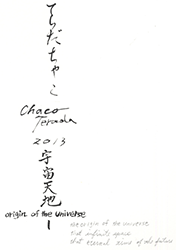 てらだちゃこ
Chaco
Terada
2013
宇宙天地
origin of the universe
the origin of the universe
that infinite space
that eternal time of the future